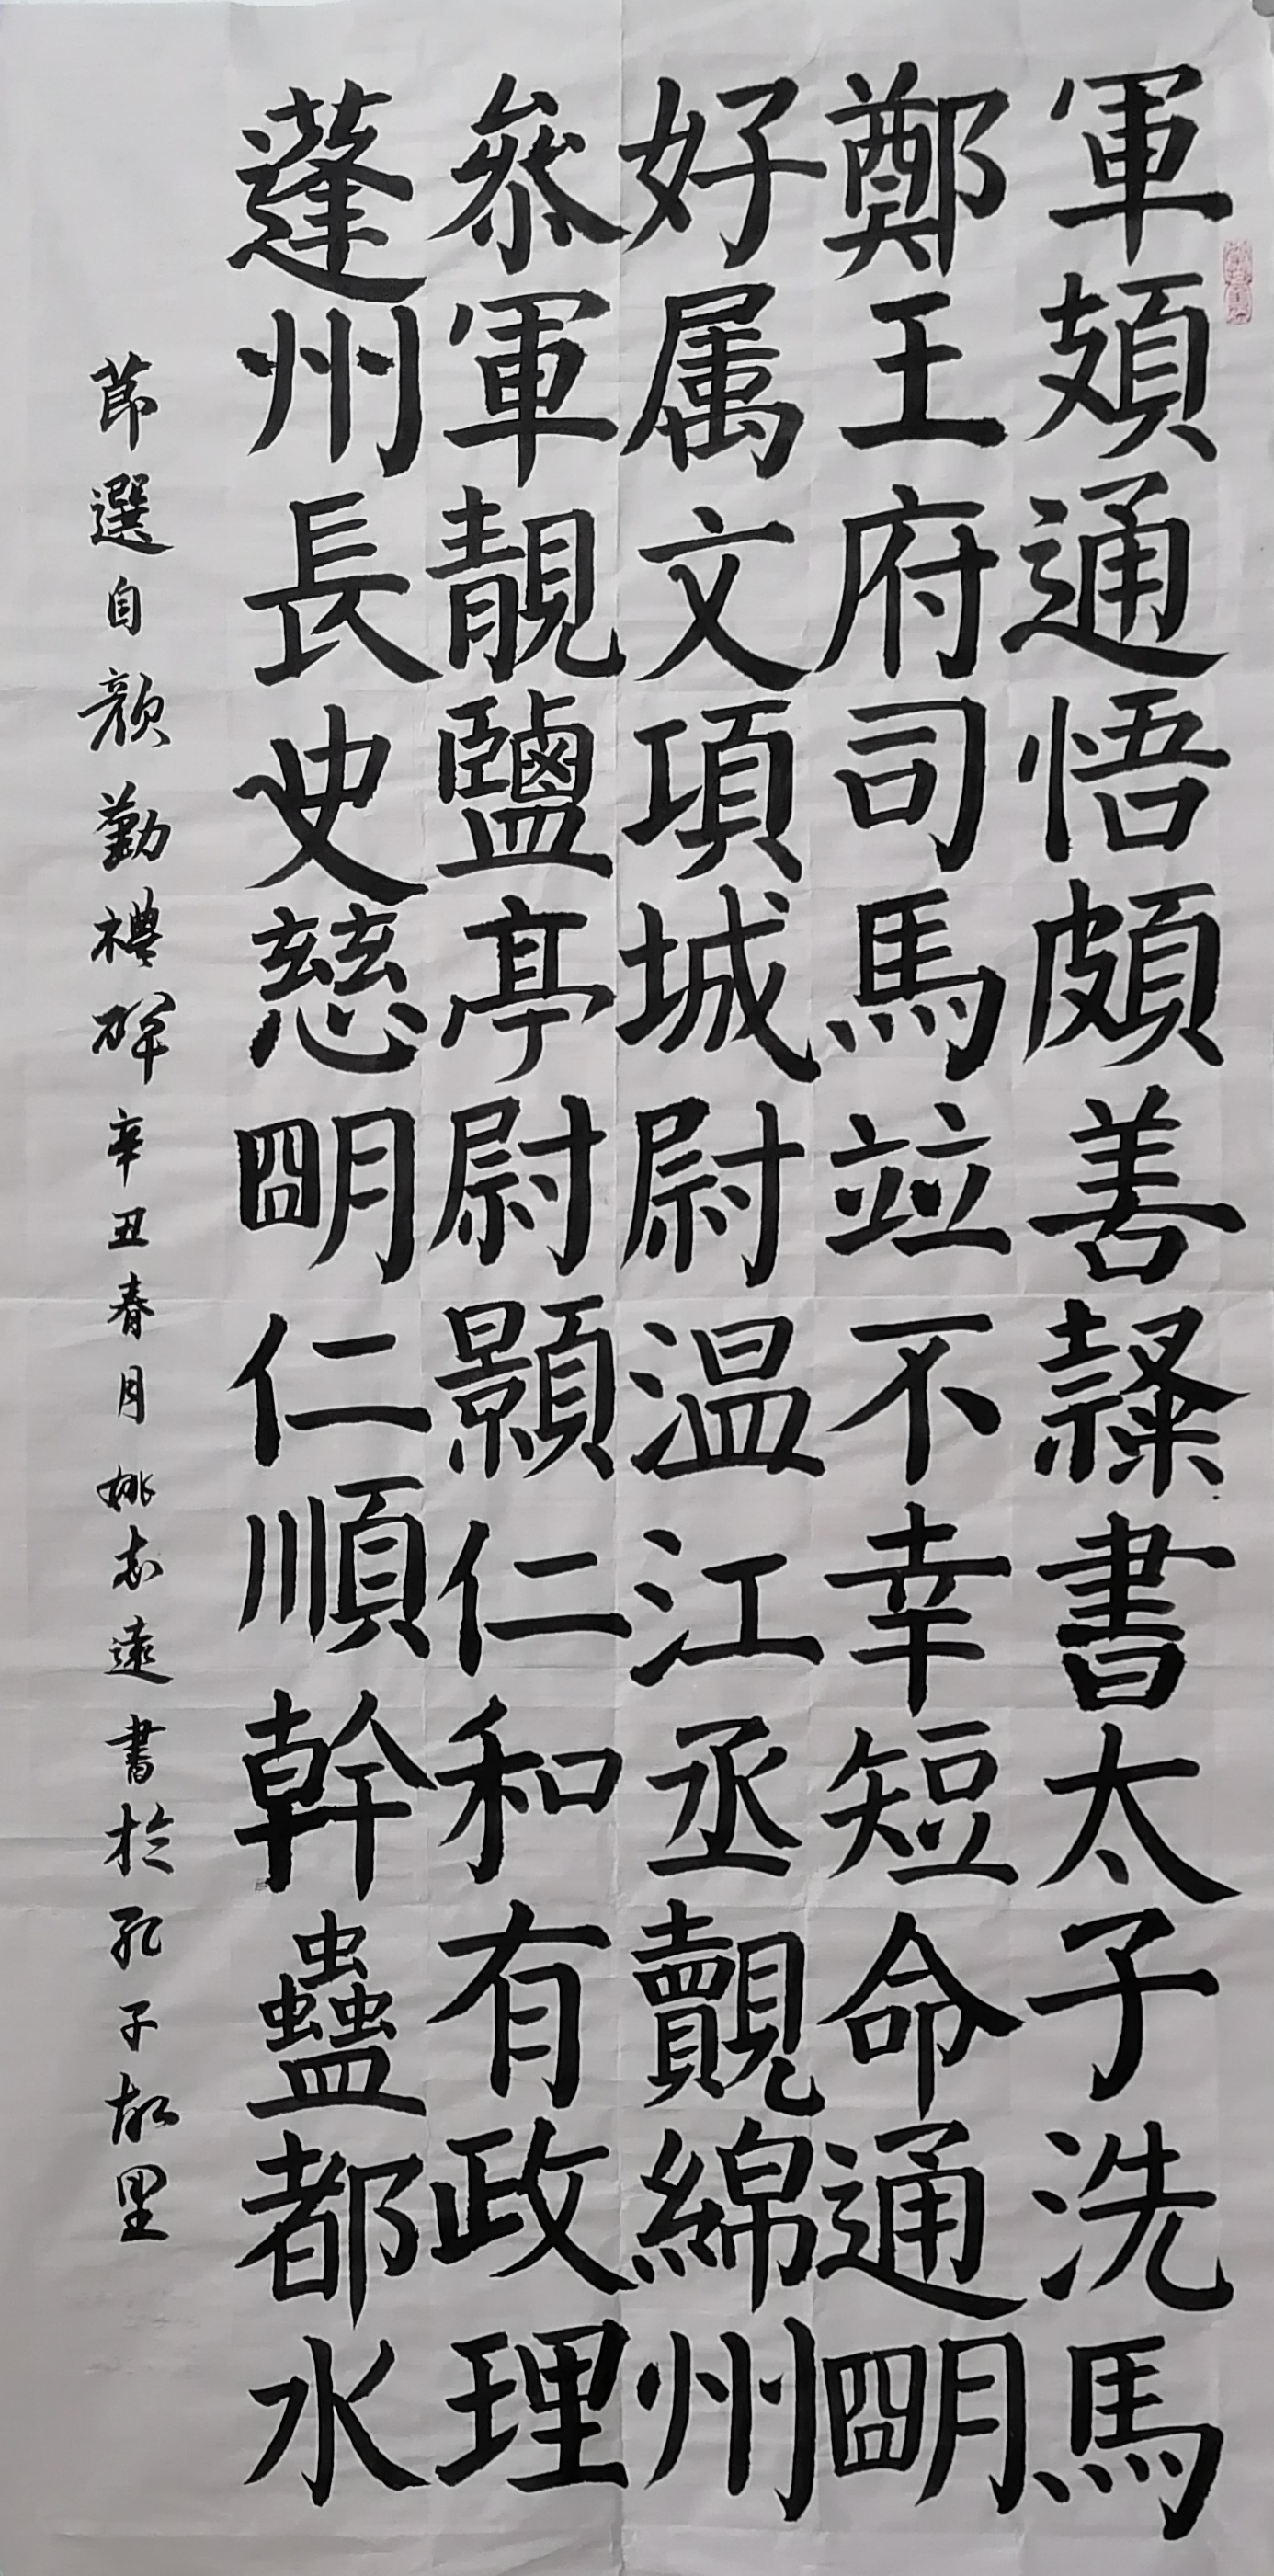 軍頍通悟頗善隸書太子洗馬
鄭王府司馬並不幸短命通明
好属文項城尉温江丞覿綿州
參軍靚鹽亭尉顥仁和有政理
蓬州長史慈明仁順幹蠱都水
節選自顏勤禮碑辛丑春月姚志遠書於孔子故里